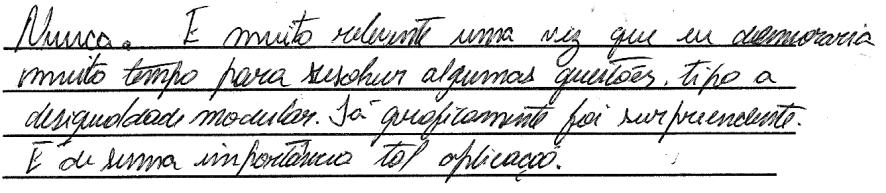 Nunca. E muito relevante uma vez que eu demoraria
muito tempo para resolver algumas questões, tipo a
desigualdade modular. Já graficamente foi surpreendente.
É de suma importância tal aplicação.